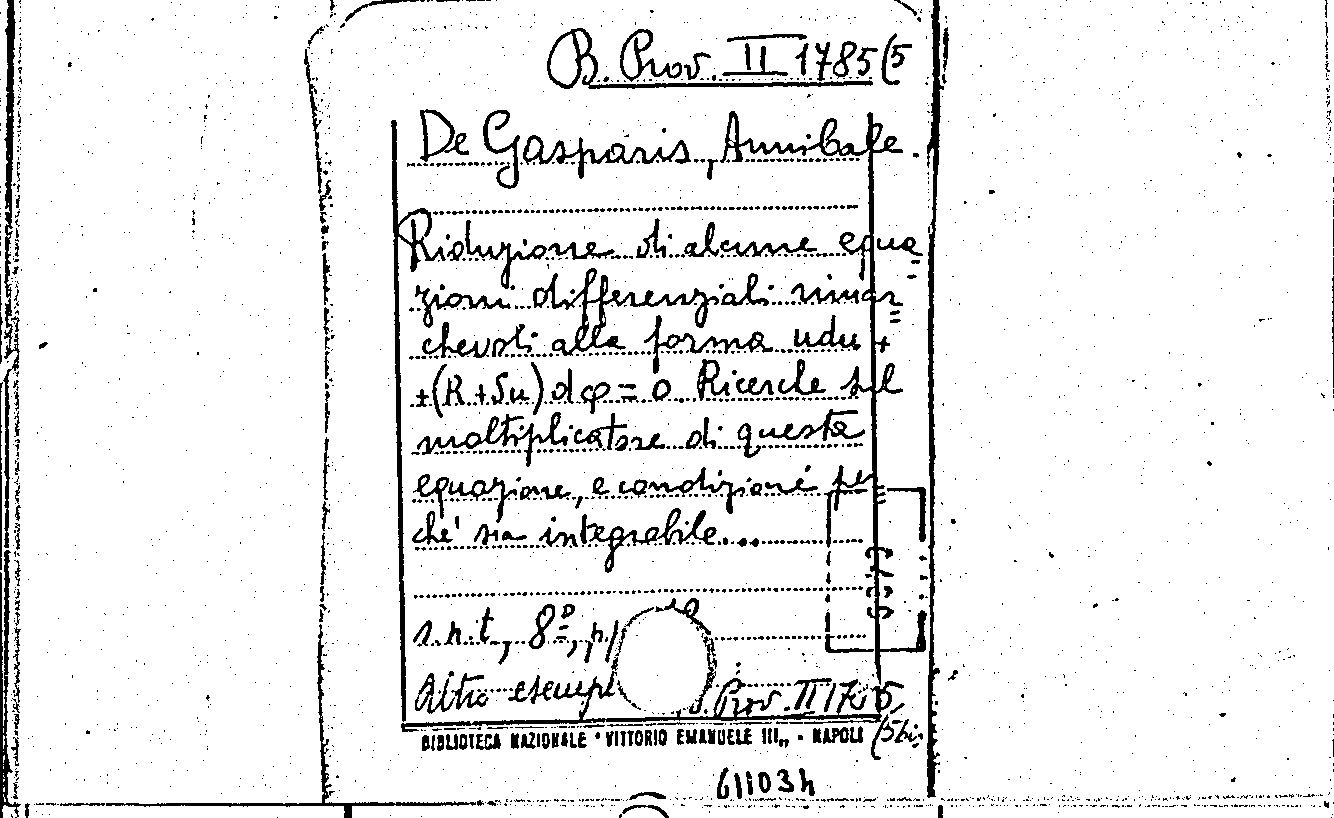 B. Prov. II 1785(5
De Gasparis, Annibale.
Riduzione di alcune equa
zioni differenziali rimar
chevoli alla forma udu +
+(R+Su)dφ=0. Ricerche sul
moltiplicatore di questa
equazione, e condizioni per
ché sia integrabile...
s.n.t, 8º,
Altro esempl
Prov. II 1785
(5bis
BIBLIOTECA NAZIONALE "VITTORIO EMANUELE III„ - NAPOLI
611034